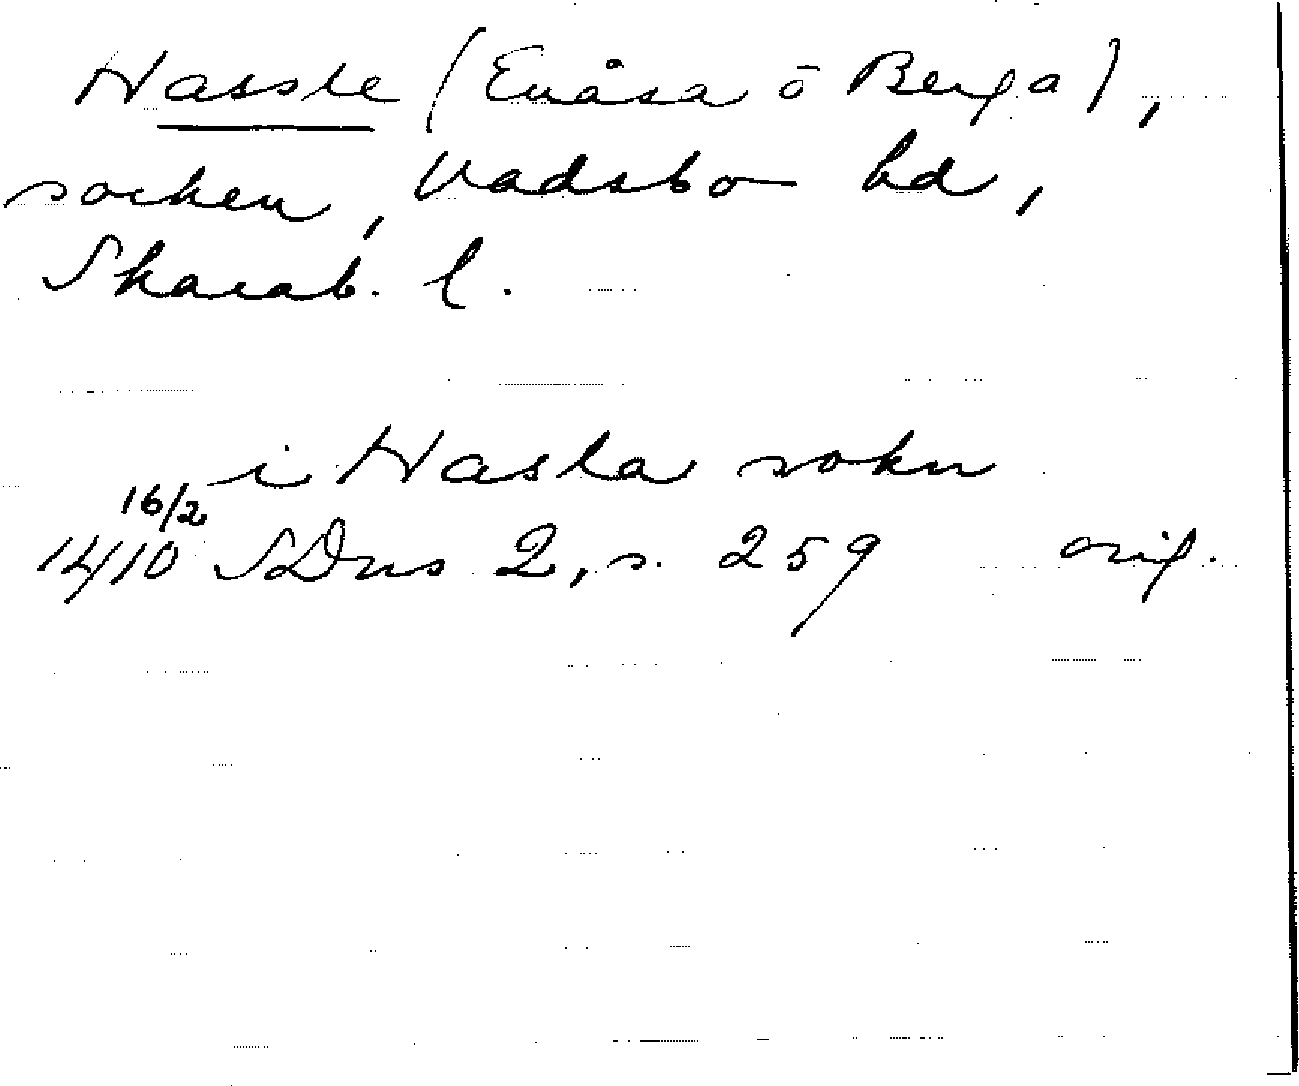 Hassle (Enåsa ō Berga),
socken, Vadsbo hd,
Skarab. l.
i Hasla sokn
16/2
1410 SDns 2, s. 259 orig.